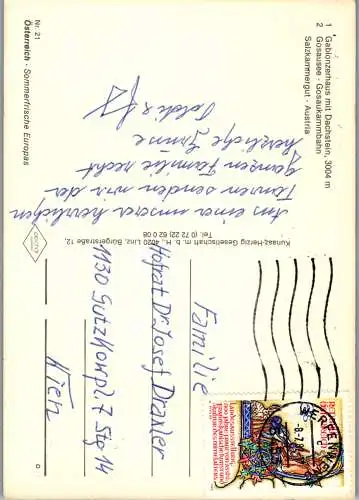 1 Gablonzerhaus mit Dachstein, 3004 m
2 Gosausee - Gosaukammbahn
Salzkammergut - Austria
Aus einer unserer herrlichen
Touren senden wir der
ganzen Familie recht
herzliche Grüsse
Nr. 21
Österreich - Sommerfrische Europas
Kunaz-Herzig Gesellschaft m. b. H., 4020 Linz, Bürgerstraße 12,
Tel. (0 72 22) 62 0 08
Familie
Hofrat Dr. Josef Draxler
1130 Gutzkowpl. 7 Stg 14
Wien
Landesausstellung